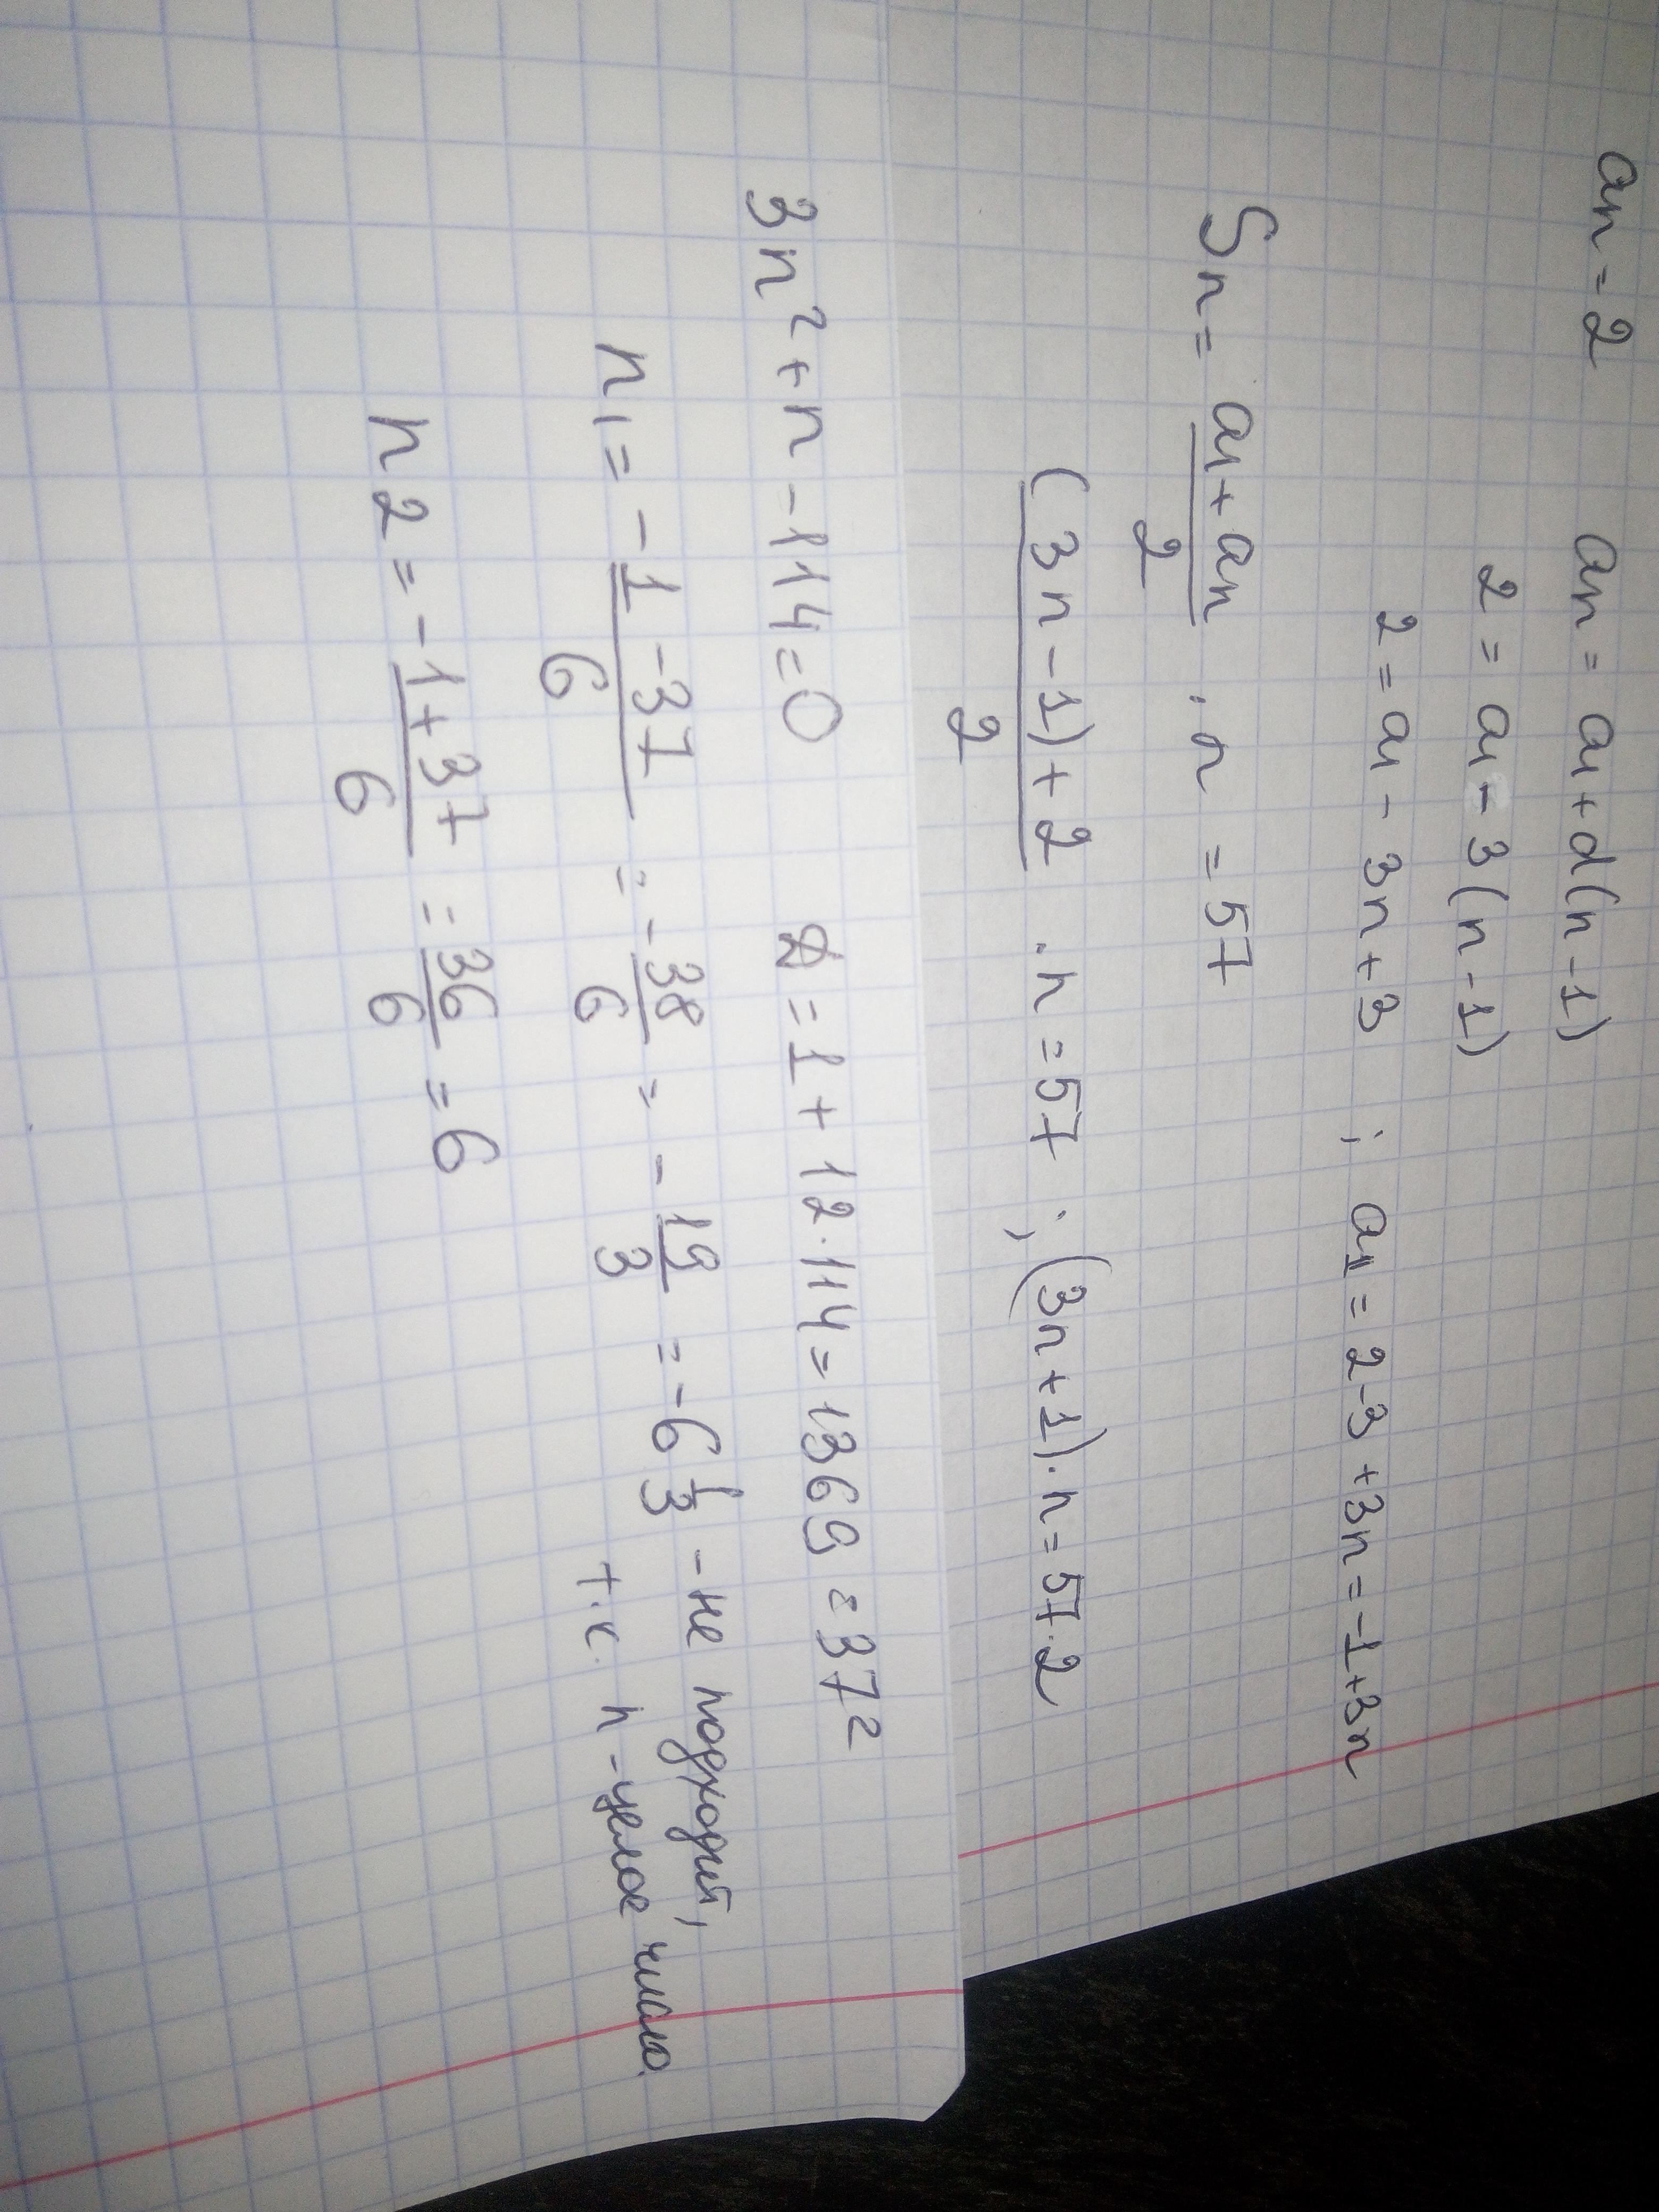 an = 2 an = a₁ + d(n - 1)
2 = a₁ - 3(n - 1)
2 = a₁ - 3n + 3 ; a₁ = 2 - 3 + 3n = -1 + 3n
Sn = (a₁ + an)/2 · n = 57
((3n - 1) + 2)/2 · n = 57 ; (3n + 1) · n = 57 · 2
3n² + n - 114 = 0 D = 1 + 12 · 114 = 1369 = 37²
n₁ = (-1 - 37)/6 = -38/6 = -19/3 = -6 1/3 - не подходит,
т.к. n - целое число.
n2 = (-1 + 37)/6 = 36/6 = 6